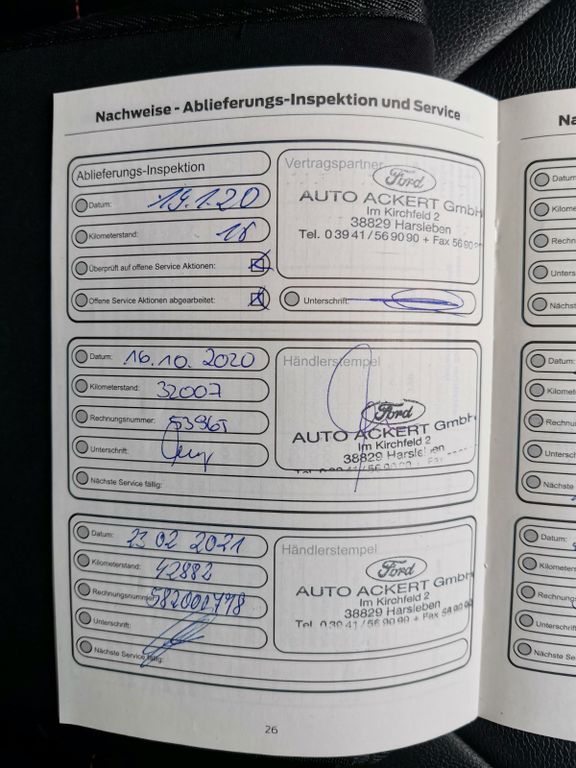 Nachweise - Ablieferungs-Inspektion und Service
Ablieferungs-Inspektion
Datum: 19.1.20
Kilometerstand: 18
Überprüft auf offene Service Aktionen:
Offene Service Aktionen abgearbeitet:
Vertragspartner
Ford
AUTO ACKERT GmbH
Im Kirchfeld 2
38829 Harsleben
Tel. 0 39 41 / 56 90 90 + Fax 56 90
Unterschrift:
Datum: 16.10.2020
Kilometerstand: 32007
Rechnungsnummer:
Unterschrift:
Nächste Service fällig:
Händlerstempel
Ford
AUTO ACKERT GmbH
Im Kirchfeld 2
38829 Harsleben
Datum: 23 02 2021
Kilometerstand: 42882
Rechnungsnumm
Unterschrift:
Nächste Service fällig:
Händlerstempel
Ford
AUTO ACKERT GmbH
Im Kirchfeld 2
38829 Harsleben
Tel. 0 39 41 / 56 90 90 + Fax 56 90 90
26
Na
Datum:
Kilome
Rechn
Unters
Nächst
Datum:
Kilome
Rechnu
Untersch
Nächste
Datum:
Kilomet
Rechnu
Untersch
Nächste